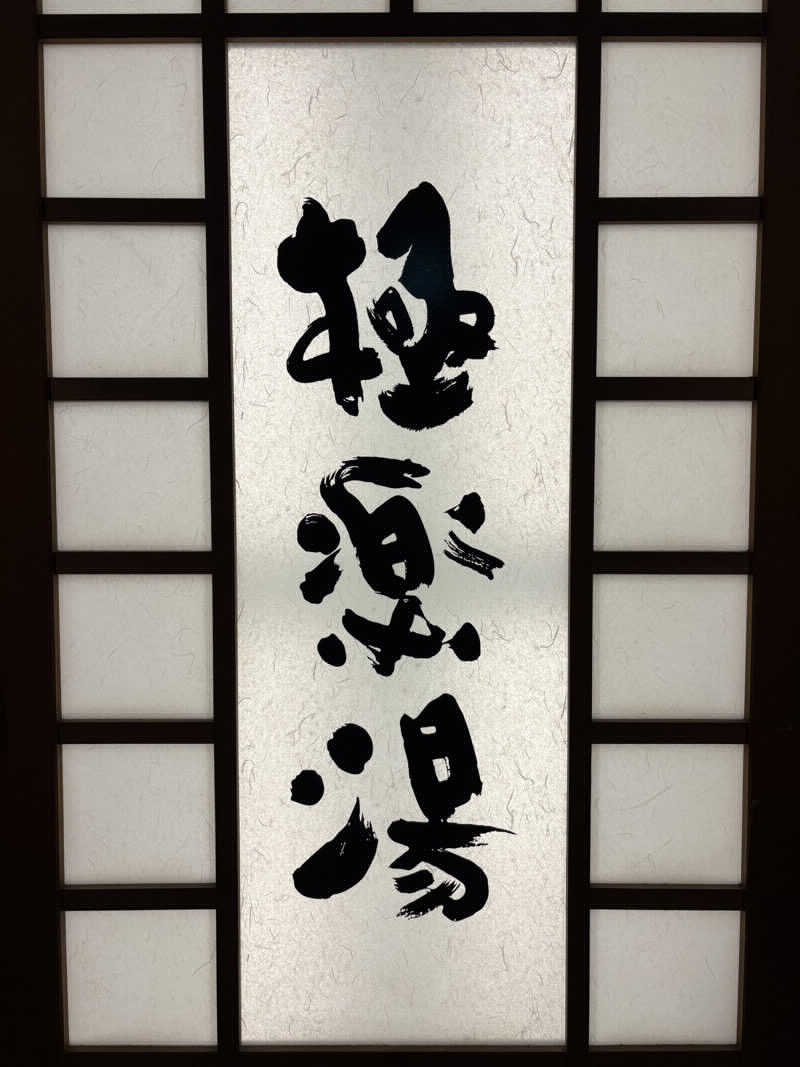 極楽湯